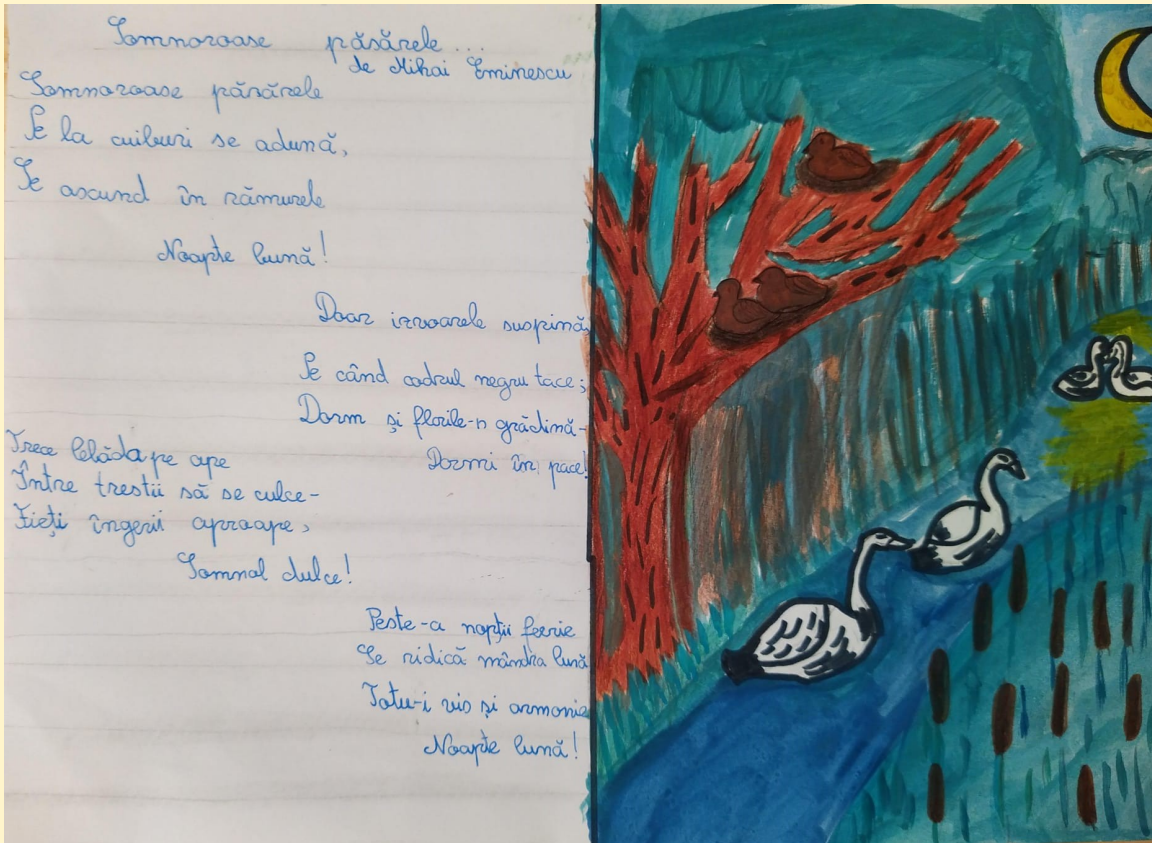 Somnoroase păsărele...
de Mihai Eminescu
Somnoroase păsărele
Pe la cuiburi se adună,
Se ascund în rămurele
Noapte bună!
Doar izvoarele suspină,
Pe când codrul negru tace;
Dorm și florile-n grădină-
Dormi în pace!
Trece lebăda pe ape
Între trestii să se culce-
Fieți îngerii aproape,
Somnol dulce!
Peste-a nopții feerie
Se ridică mândra lună
Totu-i vis și armonie
Noapte bună!